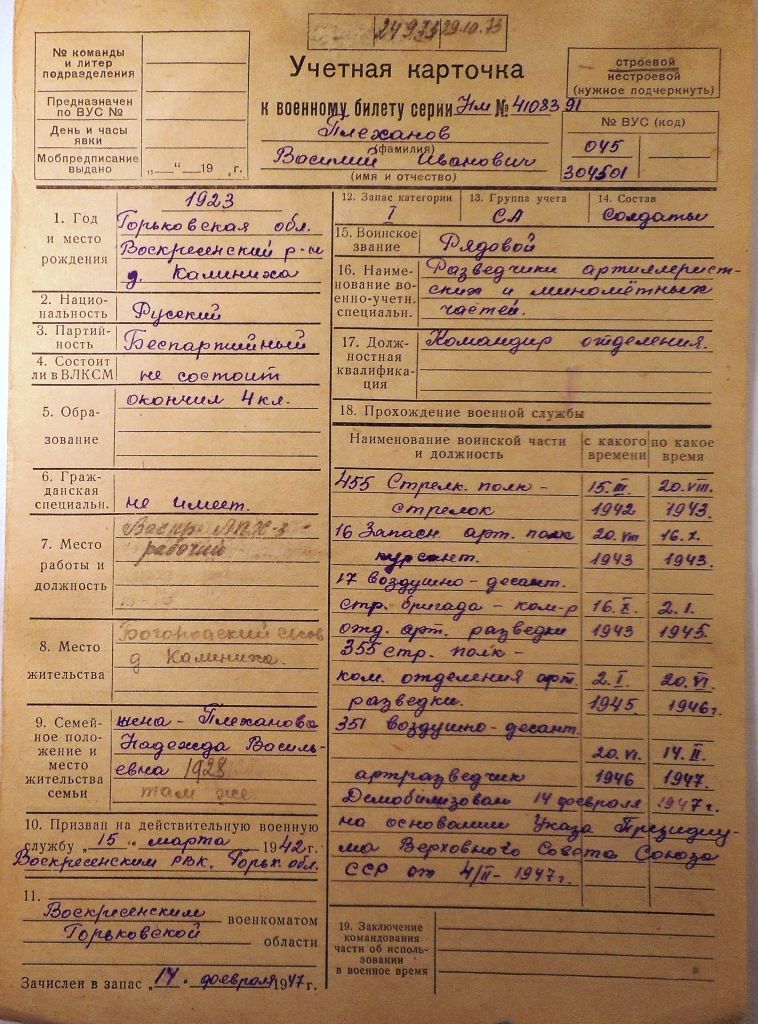 24973 29.10.73
№ команды
и литер
подразделения
Предназначен
по ВУС №
День и часы
явки
Мобпредписание
выдано
„ “ 19 г.
Учетная карточка
к военному билету серии Нм № 4108391
Плеханов
(фамилия)
Василий Иванович
(имя и отчество)
строевой
нестроевой
(нужное подчеркнуть)
№ ВУС (код)
045
304501
1. Год
и место
рождения
1923
Горьковская обл.
Воскресенский р-н
д. Калиниха
2. Нацио-
нальность
Русский
3. Партий-
ность
Беспартийный
4. Состоит
ли в ВЛКСМ
не состоит
5. Обра-
зование
окончил 4 кл.
6. Граж-
данская
специальн.
не имеет.
7. Место
работы и
должность
Воскр.
рабочий
8. Место
жительства
Богородский с/сов
д Калиниха.
9. Семей-
ное поло-
жение и
место
жительства
семьи
жена - Плеханова
Надежда Василь-
евна 1928
там же
10. Призван на действительную военную
службу „15 “ марта 1942 г.
Воскресенским РВК. Горьк. обл.
11.
Воскресенским военкоматом
Горьковской области
Зачислен в запас „14 “ февраля 1947 г.
12. Запас категории
I
13. Группа учета
СА
14. Состав
солдаты
15. Воинское
звание
Рядовой
16. Наиме-
нование во-
енно-учетн.
специальн.
Разведчики артиллерист-
ских и миномётных
частей.
17. Долж-
ностная
квалифика-
ция
Командир отделения.
18. Прохождение военной службы
Наименование воинской части
и должность
с какого
времени
по какое
время
455 Стрелк. полк - 15.III. 20.VIII.
стрелок 1942 1943.
16 Запасн. арт. полк 20.VIII 16.X.
курсант. 1943 1943.
17 воздушно-десант.
стр. бригада - ком-р 16.X. 2.I.
отд. арт. разведки 1943 1945.
355 стр. полк -
ком. отделения арт. 2.I. 20.VI.
разведки. 1945 1946 г.
351 воздушно-десант.
20.VI. 14.II.
артразведчик 1946 1947.
Демобилизован 14 февраля 1947 г.
на основании Указа Президиу-
ма Верховного Совета Союза
ССР от 4/II-1947 г.
19. Заключение
командования
части об исполь-
зовании
в военное время